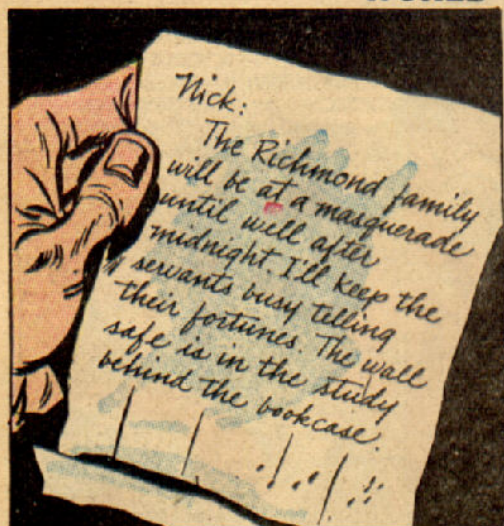 Nick:
The Richmond family
will be at a masquerade
until well after
midnight. I'll keep the
servants busy telling
their fortunes. The wall
safe is in the study
behind the bookcase.